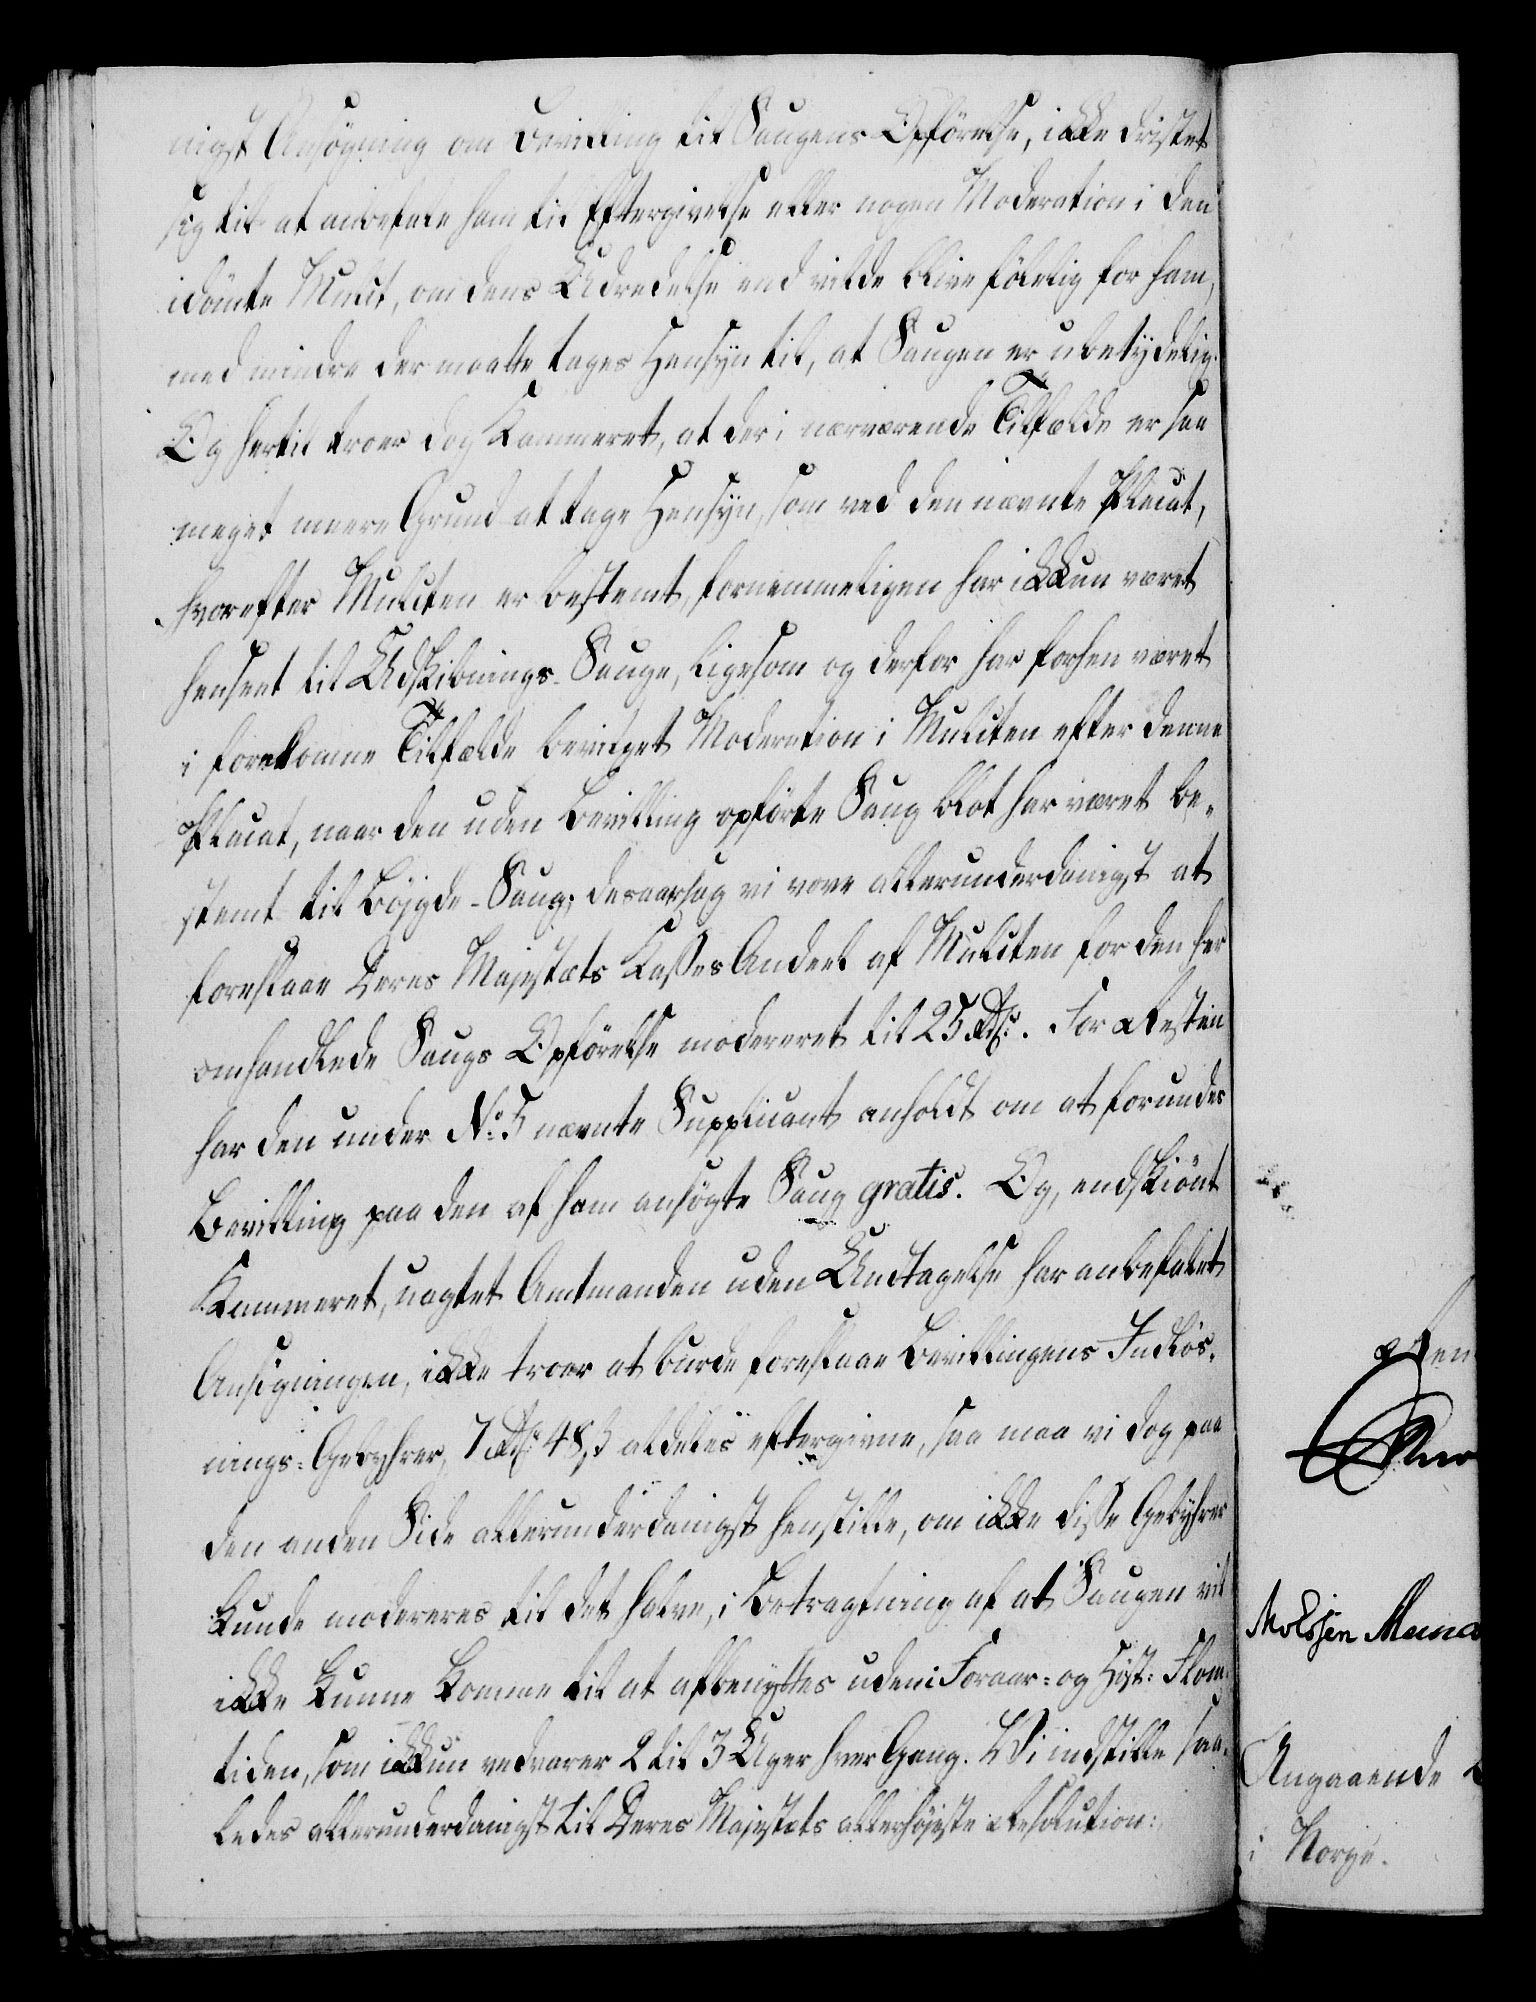 nigst Ansøgning om Bevilling til Saugens Opførelse, ikke dristet
sig til at anbefale ham til Eftergivelse eller nogen Moderation i den
idømte Mulct, om dens Udredelse end vilde blive følelig for ham,
med mindre der maatte tages Hensyn til, at Saugen er ubetydelig.
Og hertil troer dog Kammeret, at der i nærværende Tilfælde er saa
meget meere Grund at tage Hensyn, som ved den nævnte Placat,
hvorefter Mulcten er bestemt, fornemmeligen har ikkun været
henseet til Udskibnings-Sauge, ligesom og derfor har forhen været
i forekomne Tilfælde bevilget Moderation i Mulcten efter denne
Placat, naar den uden Bevilling opførte Saug blot har været be-
stemt til Böjgde-Saug; desaarsag vi vove allerunderdanigst at
foreslaae Deres Majestæts Kasses Andeel af Mulcten for den her
omhandlede Saugs Opførelse modereret til 25 Rdlr. For Resten
har den under No 5 nævnte Supplicant anholdt om at forundes
Bevilling paa den af ham ansøgte Saug gratis. Og, endskiönt
Kammeret, uagtet Amtmanden uden Undtagelse har anbefalet
Ansøgningen, ikke troer at burde foreslaae Bevillingens Indløs-
nings-Gebyhrer, 7 Rdlr 48 ß aldeles eftergivne, saa maa vi dog paa
den anden Side allerunderdanigst henstille, om ikke disse Gebyhrer
kunde modereres til det halve, i Betragtning af at Saugen vil
ikke kunne komme til at afbenyttes uden i Foraar- og Höst-Flom-
tiden, som ikkun vedvarer 2 til 3 Uger hver Gang. Vi indstille saa-
ledes allerunderdanigst til Deres Majestæts allerhöjeste Resolution:
Angaaende
i Norge.